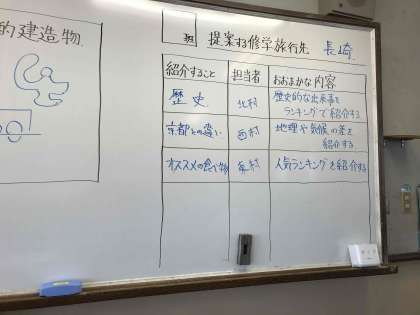 的建造物
班 提案する修学旅行先 長崎
紹介すること 担当者 おおまかな内容
歴史 北村 歴史的な出来事を
ランキングで紹介する
京都との違い 西村 地理や気候の差を
紹介する
オススメの食べ物 東村 人気ランキングを紹介する